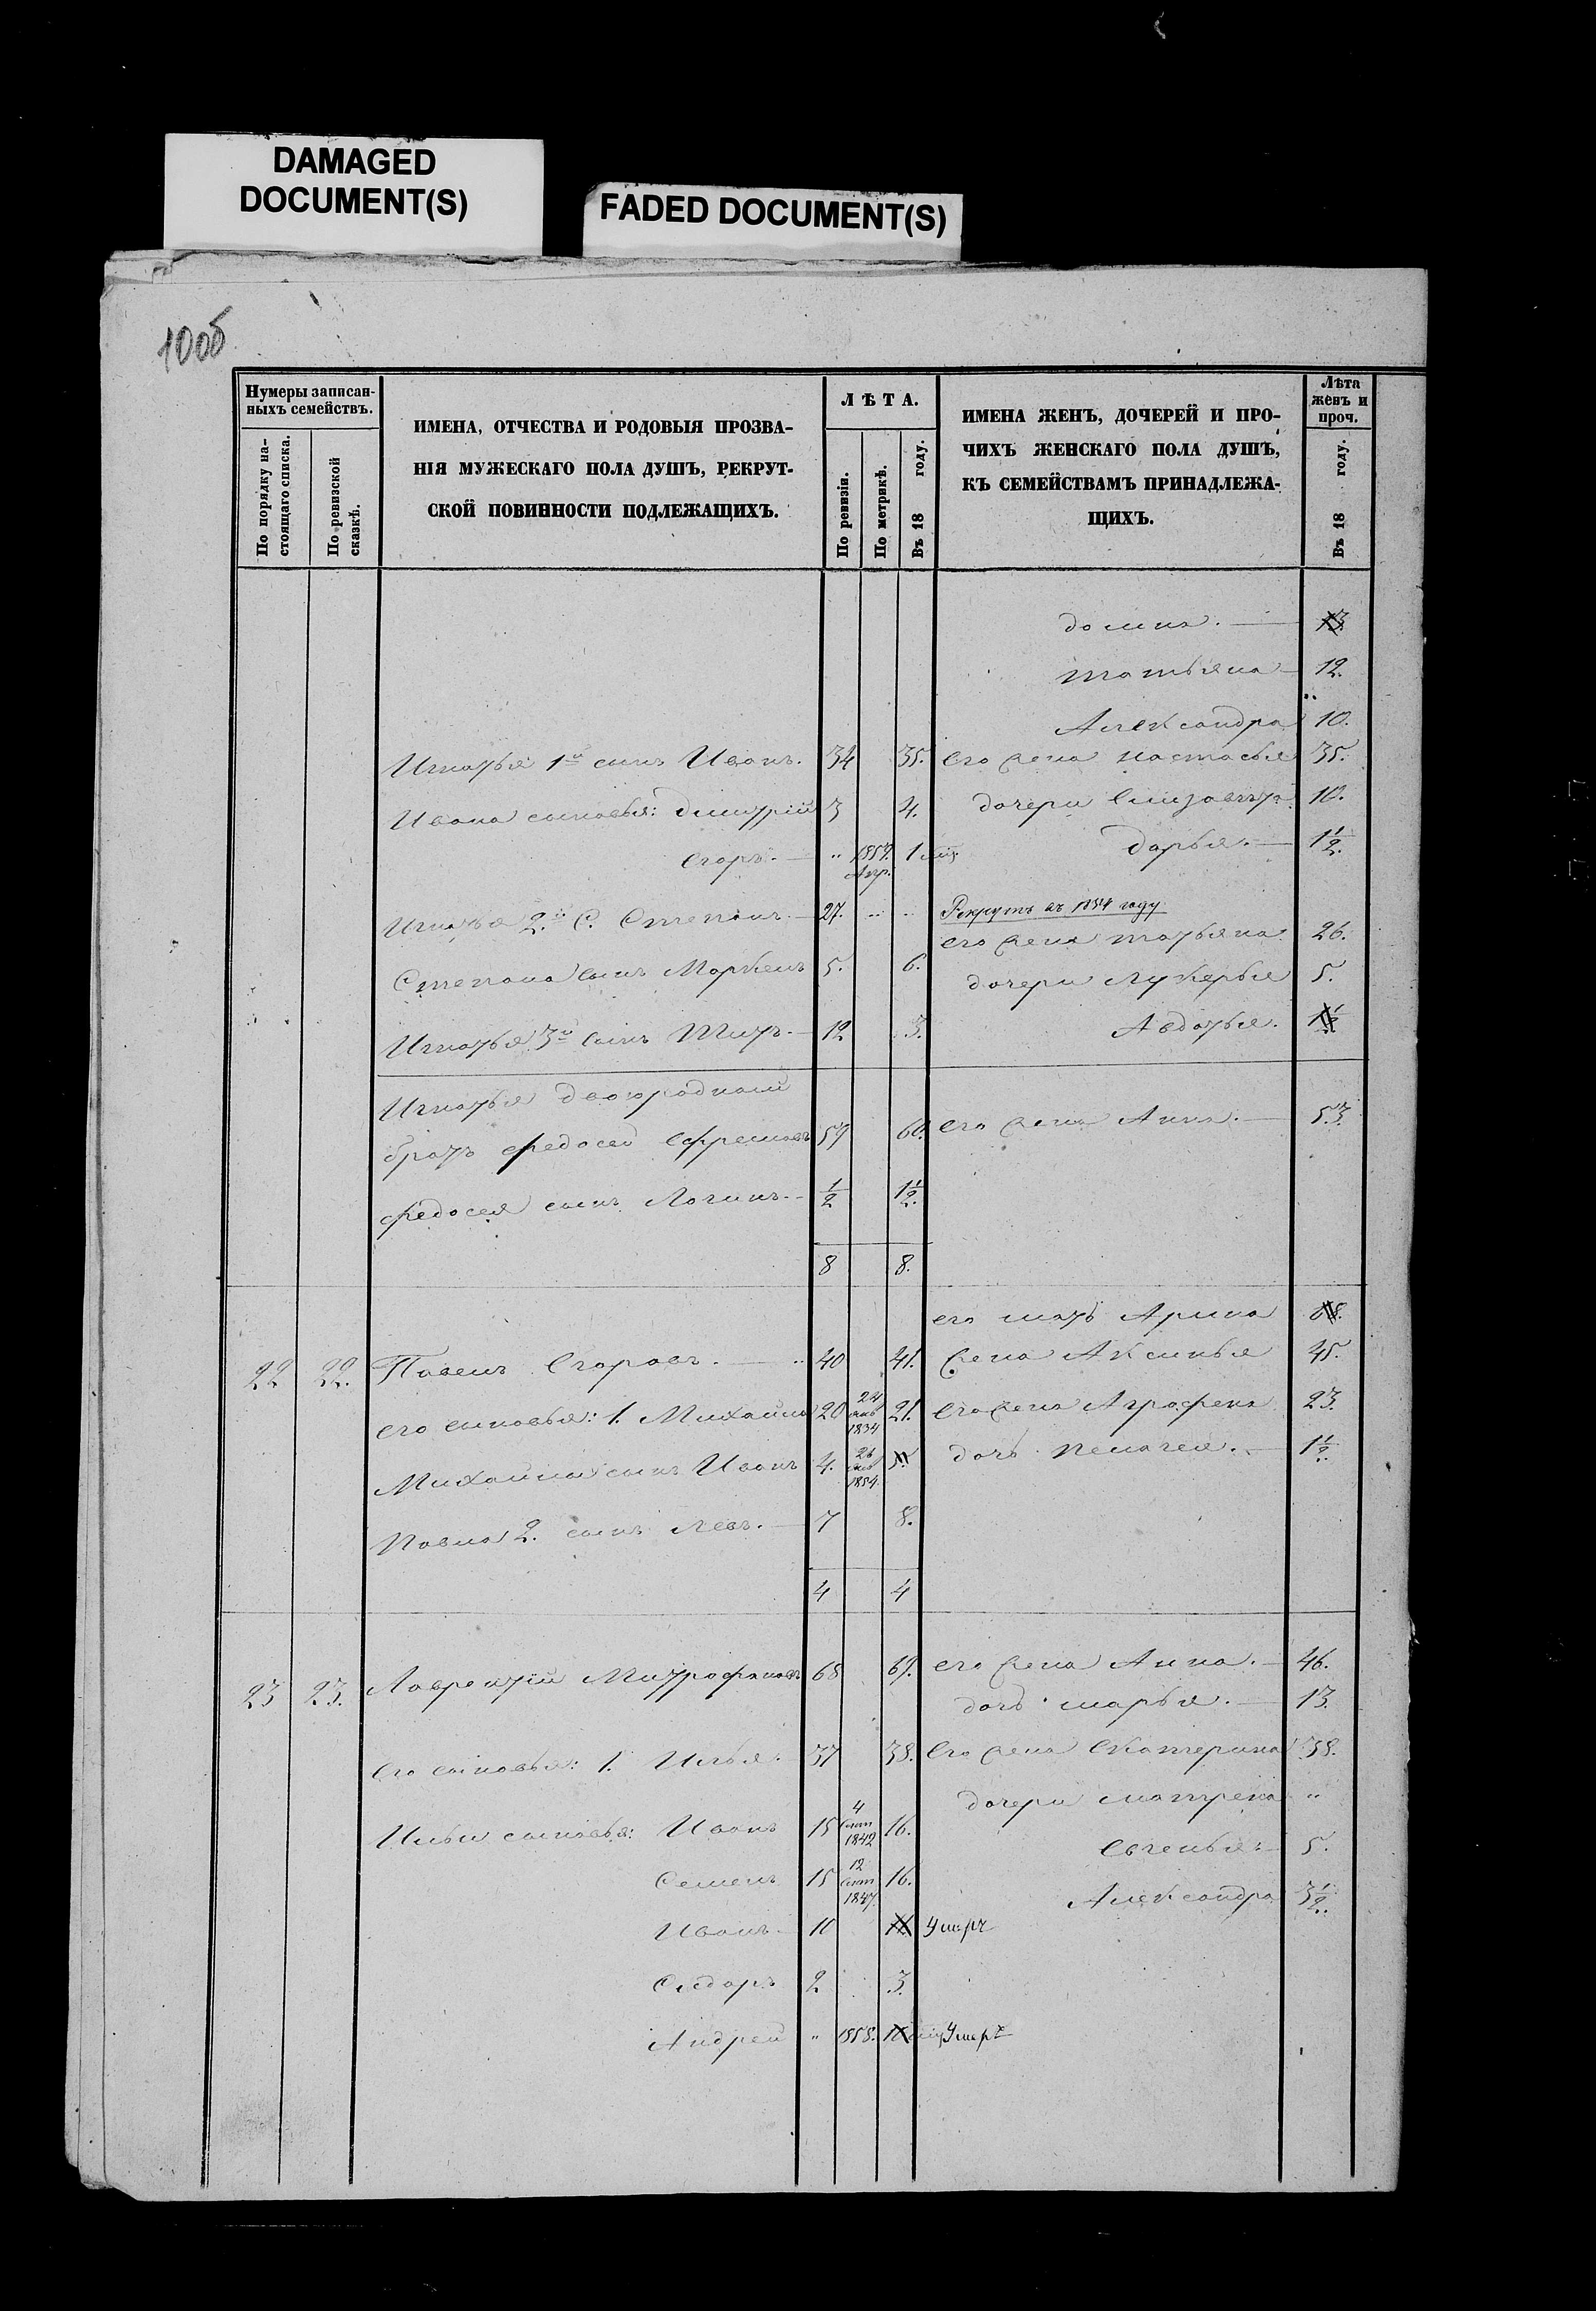 DAMAGED
DOCUMENT(S)
FADED DOCUMENT(S)
100б
Нумеры записан-
ныхъ семействъ.
По порядку на-
стоящаго списка.
По ревизской
сказкѣ.
ИМЕНА, ОТЧЕСТВА И РОДОВЫЯ ПРОЗВА-
НІЯ МУЖЕСКАГО ПОЛА ДУШЪ, РЕКРУТ-
СКОЙ ПОВИННОСТИ ПОДЛЕЖАЩИХЪ.
ЛѢТА.
По ревизіи.
По метрикѣ.
Въ 18 году.
ИМЕНА ЖЕНЪ, ДОЧЕРЕЙ И ПРО-
ЧИХЪ ЖЕНСКАГО ПОЛА ДУШЪ,
КЪ СЕМЕЙСТВАМЪ ПРИНАДЛЕЖА-
ЩИХЪ.
Лѣта
женъ и
проч.
Въ 18 году.
Домна. 13.
Татьяна 12.
Александра 10.
Игнатья 1й сынъ Иванъ. 34 35. его жена Настасья 35.
Ивана сыновья: Дмитрій 3 4. дочери Елизавета 10.
Егоръ. " Апр. 1 мѣ. Дарья. 1½.
Игнатья 2й С. Степанъ. 27. " " Рекрутъ въ 1854 году
его жена Татьяна. 26.
Степана сынъ Маркелъ 5. 6. дочери Лукерья 5.
Игнатья 3й сынъ Титъ. 12 3. Авдотья. 1½
Игнатья двоюродный
братъ Федосей Ефремовъ 59 60. его жена Анна. 53.
Федосея сынъ Логинъ. ½ 1½.
8 8.
его мать Арина 68.
22 22. Павелъ Егоровъ. 40 41. жена Аксинья 45.
его сыновья: 1. Михайла 20 24 1834 21. его жена Аграфена 23.
Михайлы сынъ Иванъ 4. 26 1854. 5. дочь Пелагея. 1½.
Павла 2. сынъ Левъ. 7 8.
4 4
23 23. Лаврентій Митрофановъ 68 69. его жена Анна. 46.
дочь Марья. 13.
Его сыновья: 1. Илья. 37 38. Его жена Екатерина 38.
дочери Матрена "
Ильи сыновья: Иванъ 15 4 1842 16.
Евгенья. 5.
Семенъ 15 12 1847. 16.
Александра 3½.
Иванъ 10 Умеръ
Сидоръ 2 3.
Андрей " 1858. Умеръ